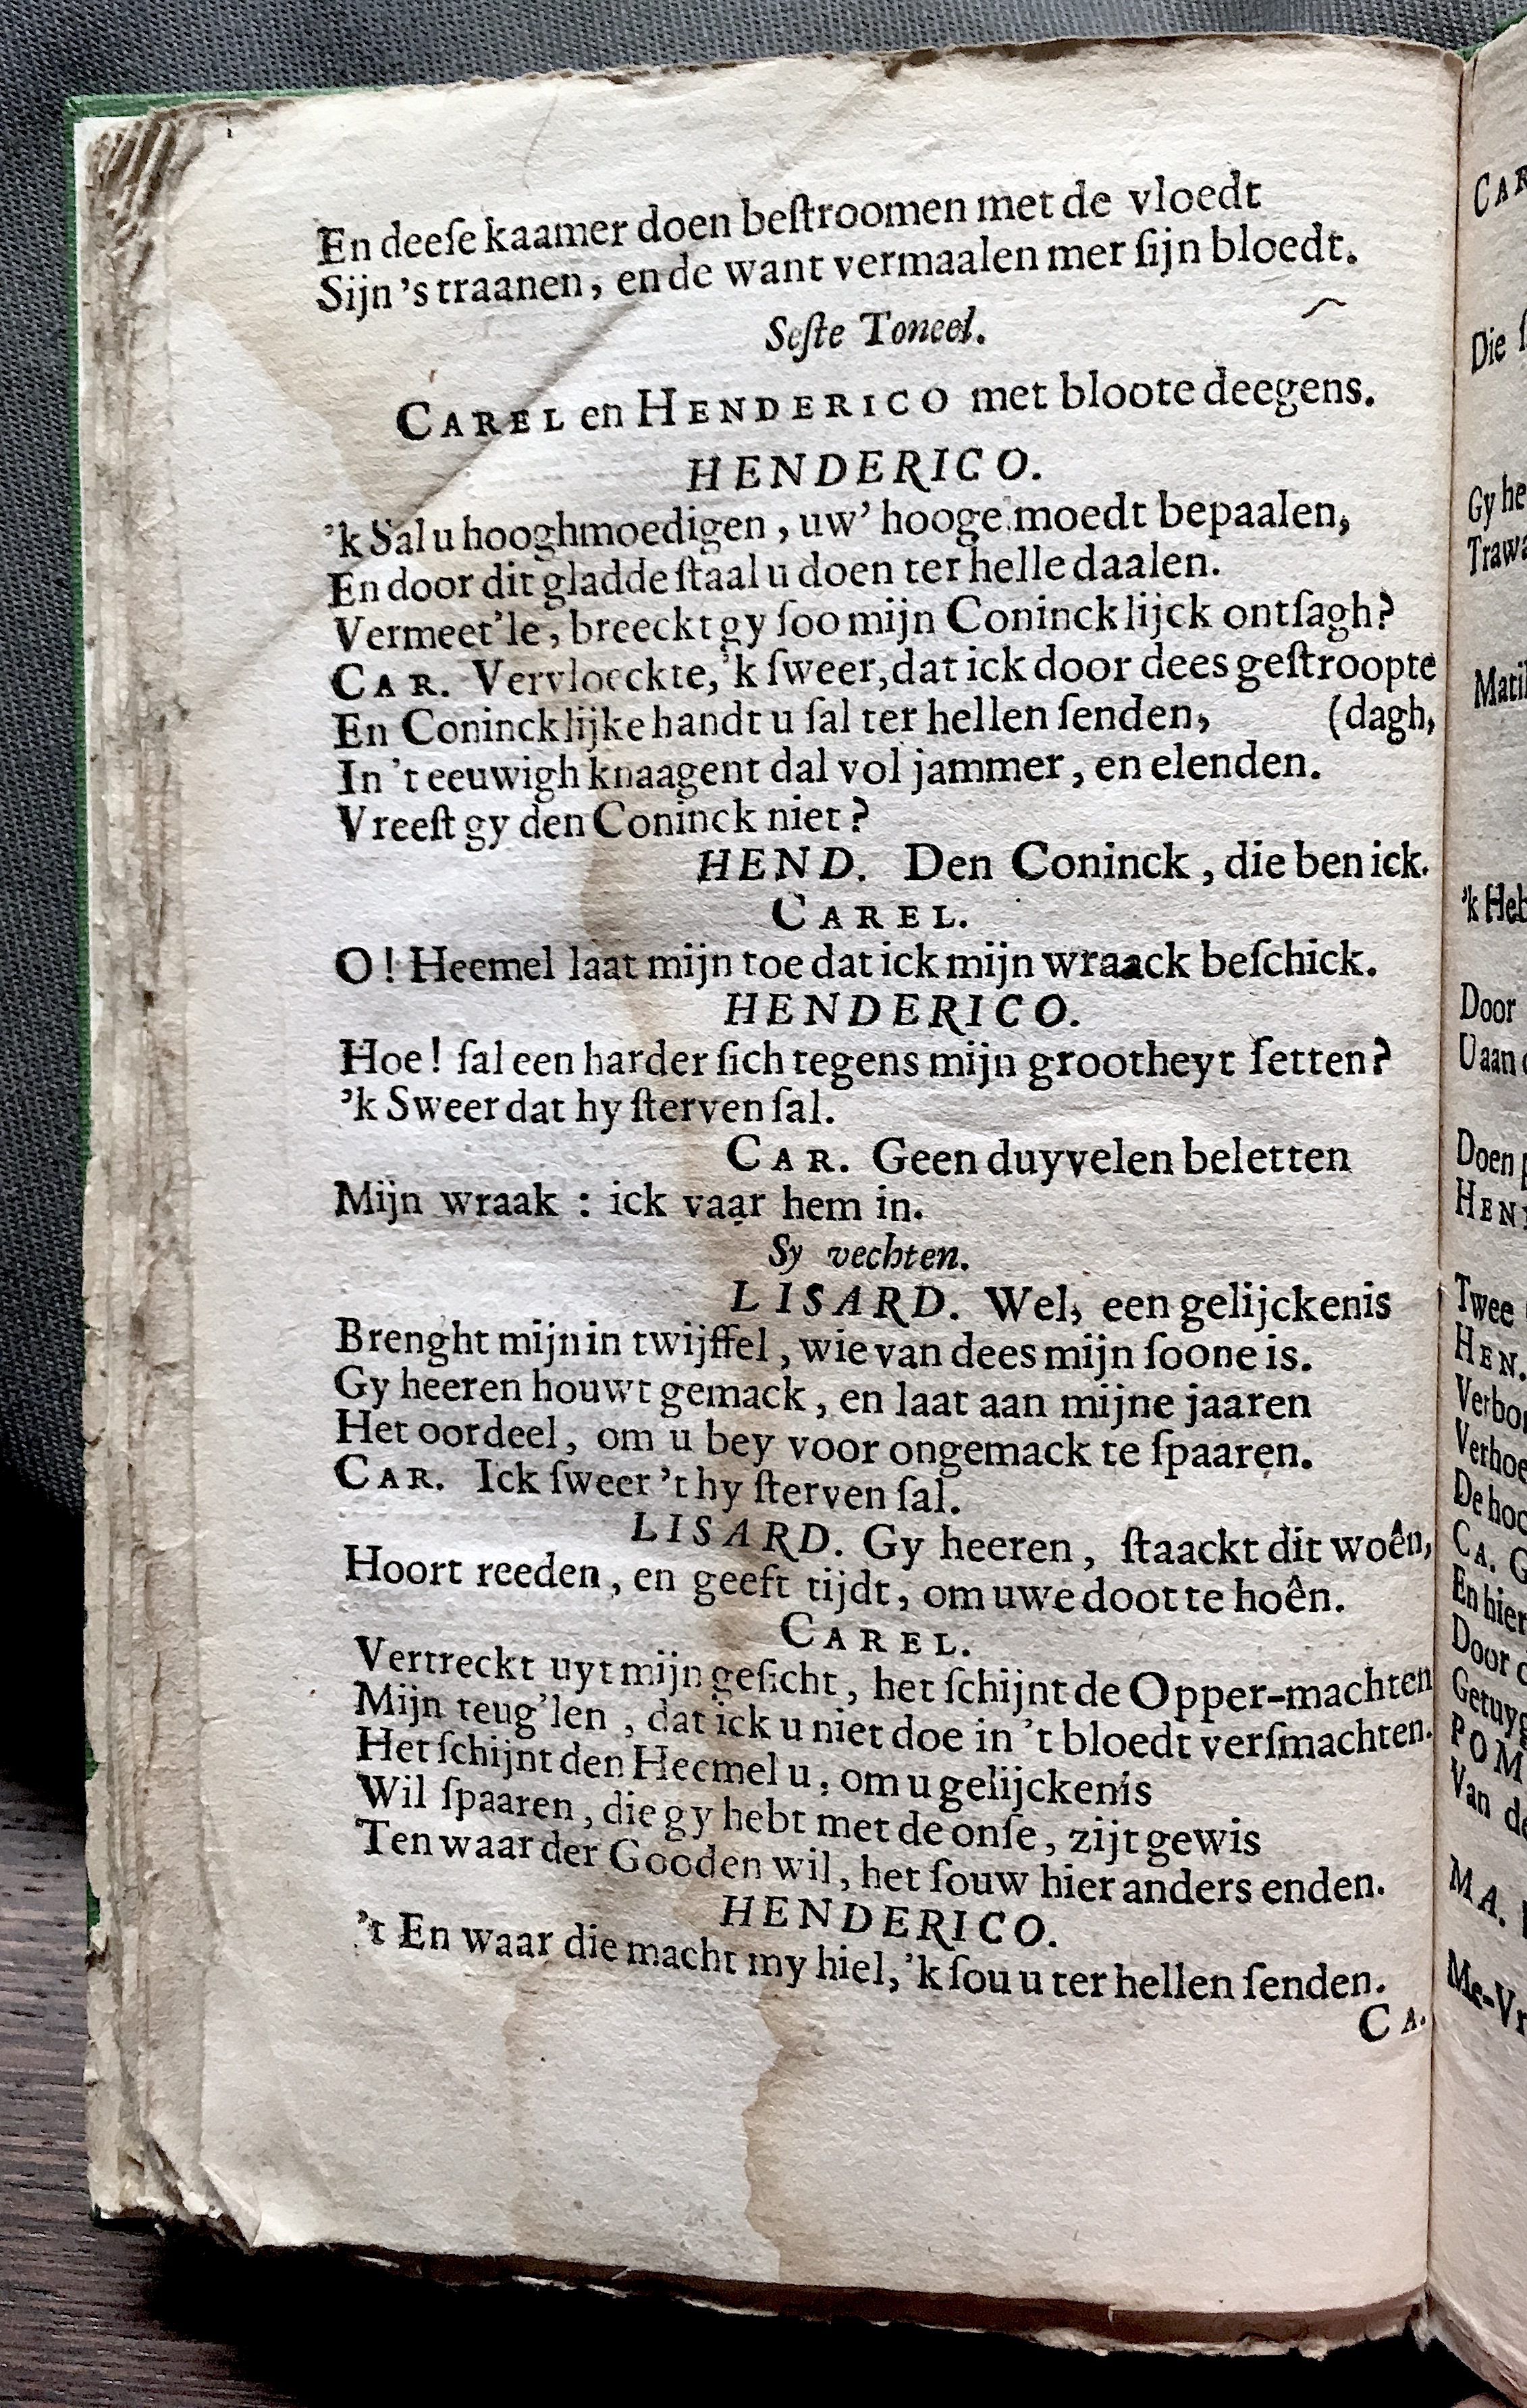 En deeſe kaamer doen beſtroomen met de vloedt
Sijn 's traanen, en de want vermaalen mer ſijn bloedt.
Seſte Toneel.
CAREL en HENDERICO met bloote deegens.
HENDERICO.
'k Sal u hooghmoedigen, uw' hooge moedt bepaalen,
En door dit gladde ſtaal u doen ter helle daalen.
Vermeet'le, breeckt gy ſoo mijn Conincklijck ontſagh?
CAR. Vervloeckte, 'k ſweer, dat ick door dees geſtroopte
En Conincklijke handt u ſal ter hellen ſenden, (dagh,
In 't eeuwigh knaagent dal vol jammer, en elenden.
Vreeſt gy den Coninck niet?
HEND. Den Coninck, die ben ick.
CAREL.
O! Heemel laat mijn toe dat ick mijn wraack beſchick.
HENDERICO.
Hoe! ſal een harder ſich tegens mijn grootheyt ſetten?
'k Sweer dat hy ſterven ſal.
CAR. Geen duyvelen beletten
Mijn wraak : ick vaar hem in.
Sy vechten.
LISARD. Wel, een gelijckenis
Brenght mijn in twijffel, wie van dees mijn ſoone is.
Gy heeren houwt gemack, en laat aan mijne jaaren
Het oordeel, om u bey voor ongemack te ſpaaren.
CAR. Ick ſweer 't hy ſterven ſal.
LISARD. Gy heeren, ſtaackt dit woên,
Hoort reeden, en geeft tijdt, om uwe doot te hoên.
CAREL.
Vertreckt uyt mijn geſicht, het ſchijnt de Opper-machten
Mijn teug'len, dat ick u niet doe in 't bloedt verſmachten.
Het ſchijnt den Heemel u, om u gelijckenis
Wil ſpaaren, die gy hebt met de onſe, zijt gewis
Ten waar der Gooden wil, het ſouw hier anders enden.
HENDERICO.
't En waar die macht my hiel, 'k ſou u ter hellen ſenden.
CA.
CAR
Die
Gy he
Trawa
Matil
'k Heb
Door
U aan
Doen
HEN
Twee
HEN.
Verbo
Verhoe
De hoo
CA. G
En hier
Door
Getuyg
POM
Van de
MA.
Me-Vr